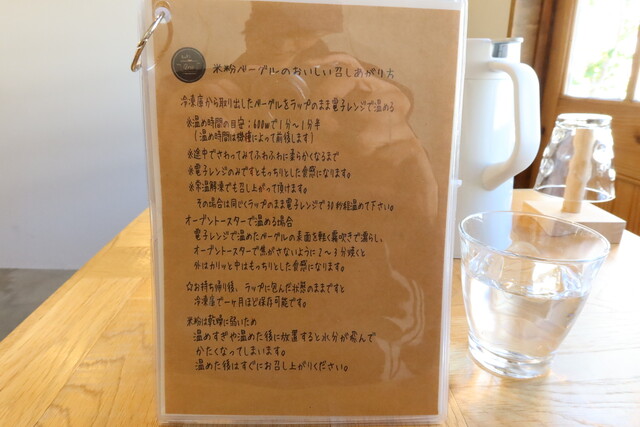 米粉ベーグルのおいしい召しあがり方
冷凍庫から取り出したベーグルをラップのまま電子レンジで温める
※温め時間の目安：600wで1分〜1分半
（温め時間は機種によって前後します）
※途中でさわってみてふわふわに柔らかくなるまで
※電子レンジのみでもっちりとした食感になります。
※常温解凍でも召し上がって頂けます。
その場合は同じくラップのまま電子レンジで30秒程温めて下さい。
オーブントースターで温める場合
電子レンジで温めたベーグルの表面を軽く霧吹きで濡らし、
オーブントースターで焦がさないように2〜3分焼くと
外はカリッと中はもっちりとした食感になります。
☆お持ち帰り後、ラップに包んだ状態のままですと
冷凍庫で一ヶ月ほど保存可能です。
米粉は乾燥に弱いため
温めすぎや温めた後に放置すると水分が飛んで
かたくなってしまいます。
温めた後はすぐにお召し上がりください。